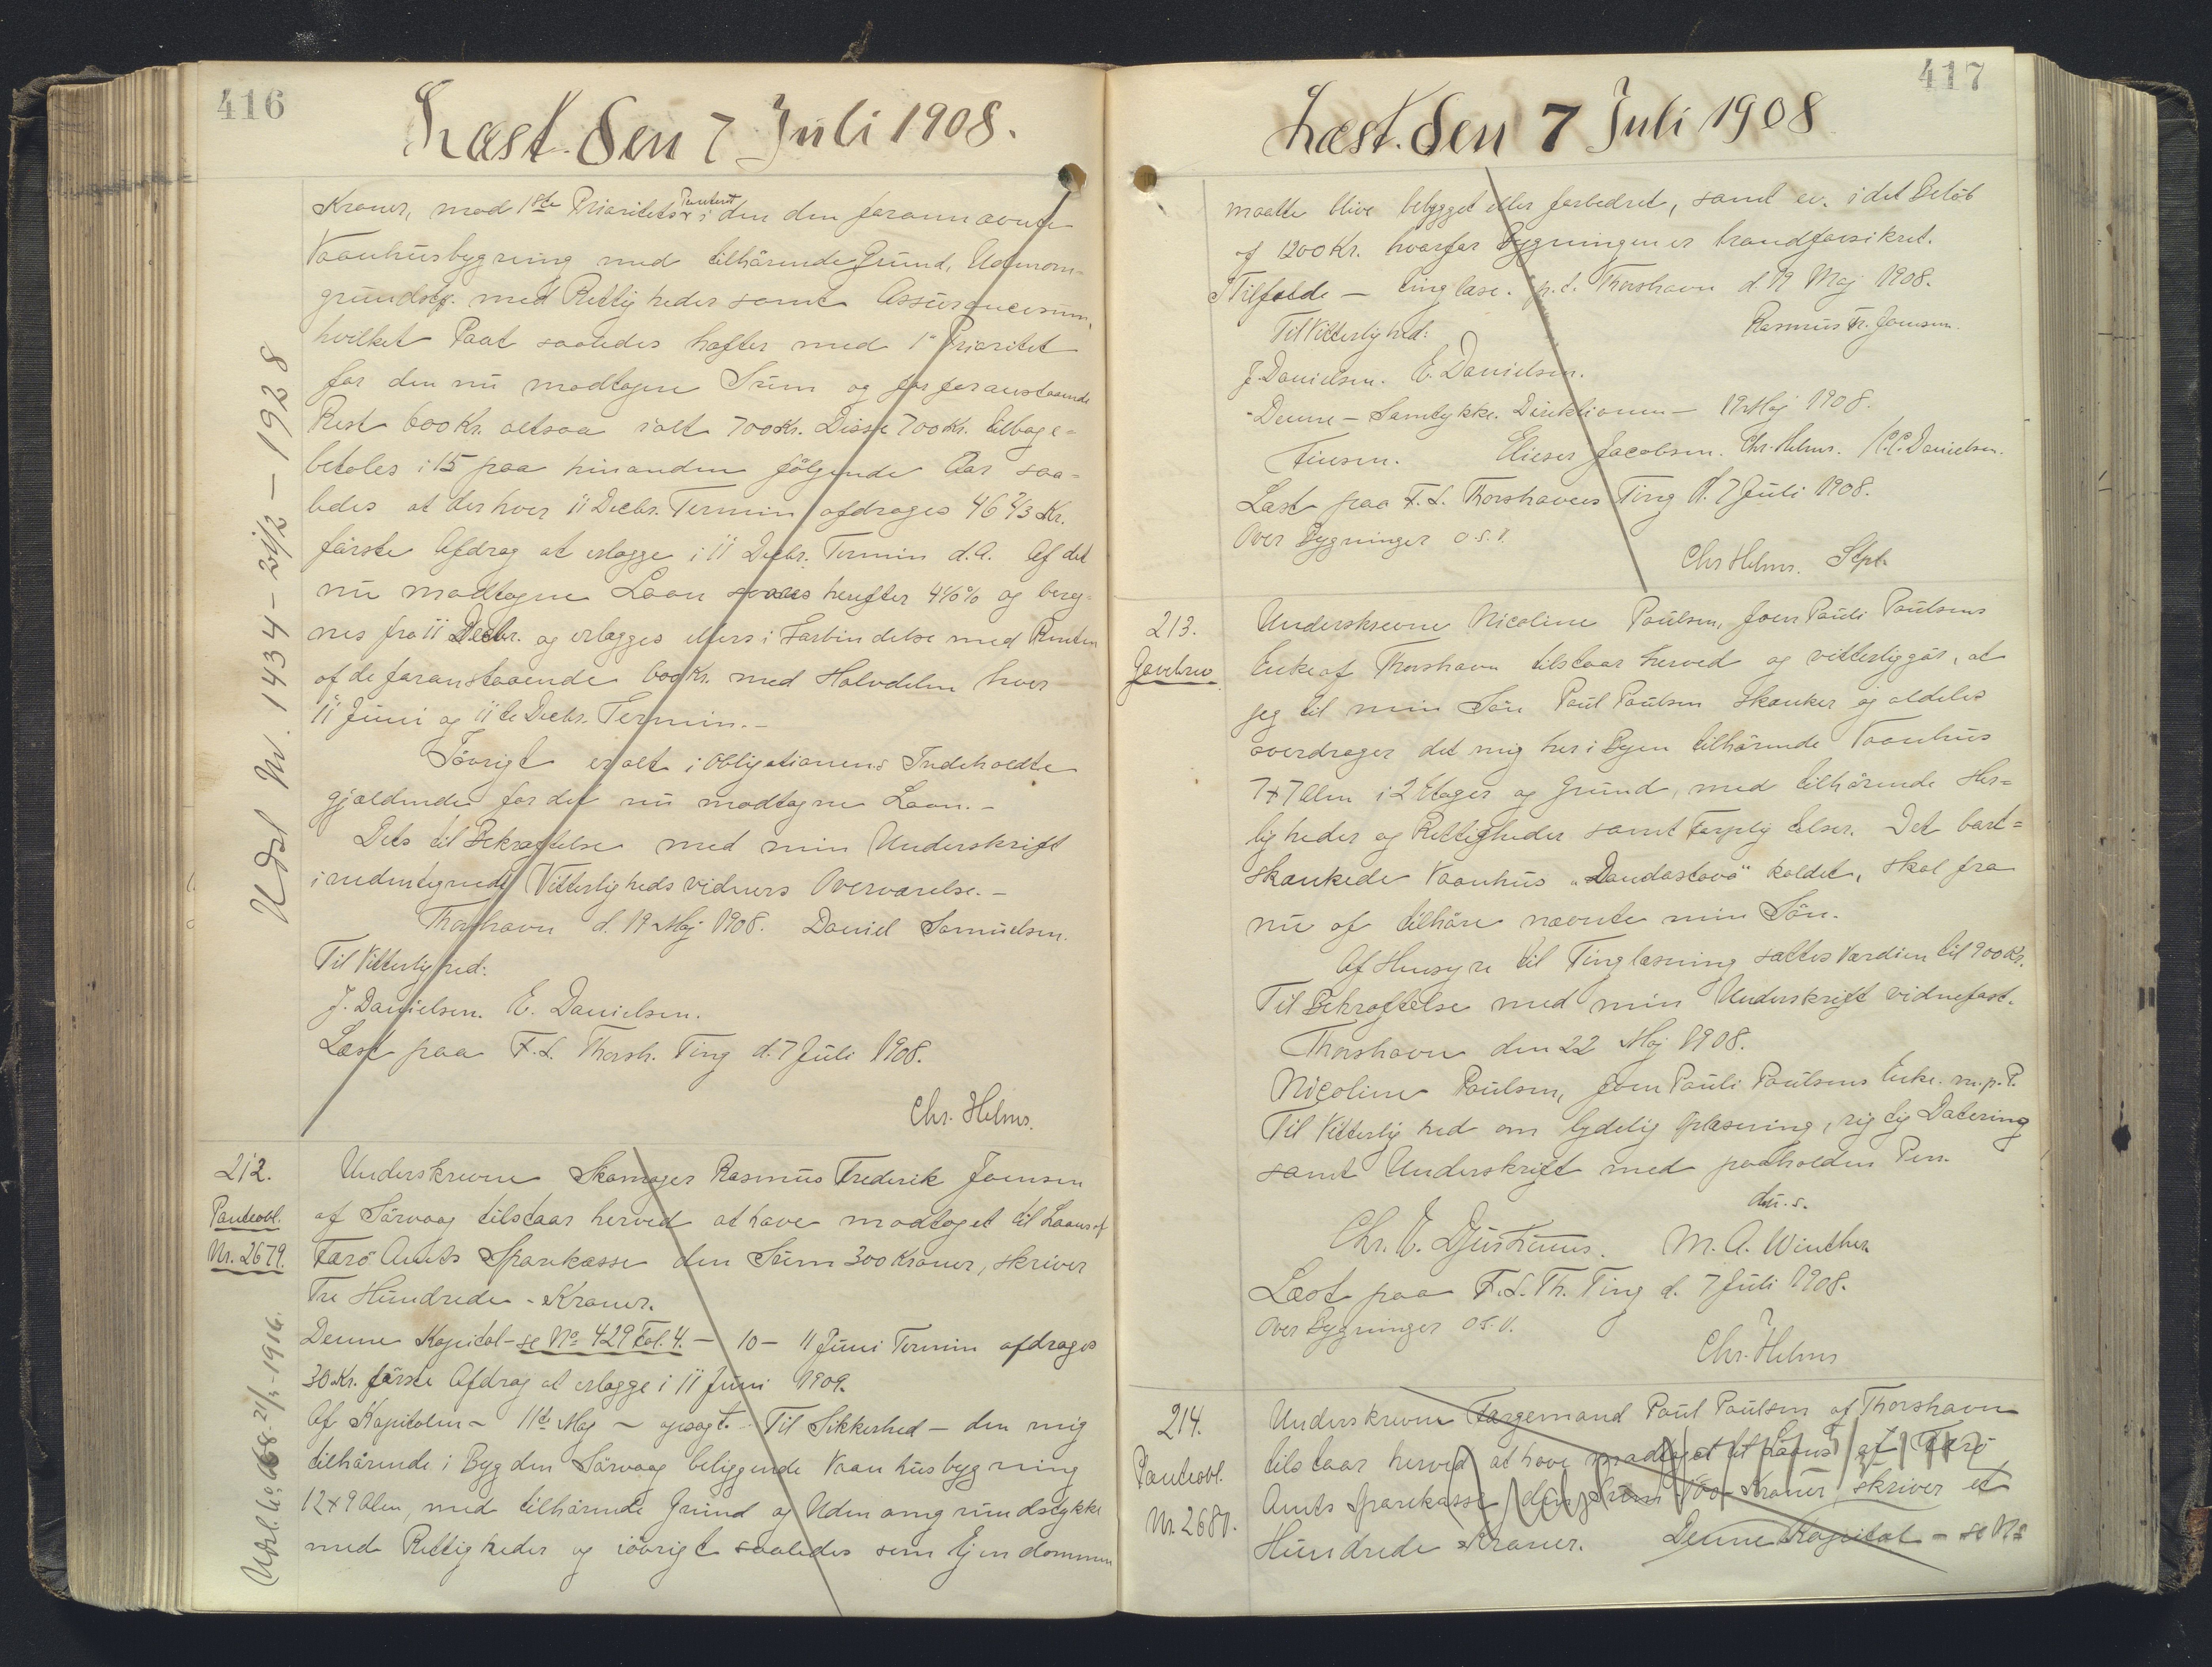 416
Læst. den 7 Juli 1908.
Udsl. Nr. 1434 - 1928
Kroner, mod 1ste Prioritets Panteret i den den forannævnte
Vaanhusbygning med tilhörende Grund, Udenom-
grundstk. med Rettigheder samt Assurancesum,
hvilket Pant saaledes hæfter med 1' Prioritet
for den nu modtagne Sum og for foranstaaende
Rest 600 Kr. altsaa ialt 700 Kr. Disse 700 Kr. tilbage-
betales i 15 paa hinanden fölgende Aar saa-
ledes at der hver 11 Decbr. Termin afdrages 46 2/3 Kr.
förste Afdrag at erlægge i 11 Decbr. Termin d.A. Af det
nu modtagne Laan svares herefter 4½% og bereg-
nes fra 11 Decbr. og erlægges ellers i Forbindelse med Renten
af de foranstaaende 600 Kr. med Halvdelen hver
11 Juni og 11te Decbr. Termin.-
Iövrigt er alt i Obligationens Indeholdte
gjældende for det nu modtagne Laan.-
Dets til Bekræftelse med min Underskrift
i nedentegnede Vitterlighedsvidners Overværelse.-
Thorshavn d. 19 Maj 1908. Daniel Samuelsen.
Til Vitterlighed:
J. Danielsen. E. Danielsen.
Læst paa F.L. Thorsh. Ting d. 7 Juli 1908.
Chr. Helms.
212.
Panteobl.
Nr. 2679.
Underskrevne Skomager Rasmus Frederik Joensen
af Sörvaag tilstaar herved at have modtaget til Laans af
Færö Amts Sparekasse den Sum 300 Kroner, skriver
Tre Hundrede - Kroner.
Denne Kapital - se No 429 Fol. 4. - 10 - 11 Juni Termin afdrages
30 Kr. förste Afdrag at erlægge i 11 Juni 1909.
Af Kapitalen - 11te Maj - opsagt. - Til Sikkerhed - den mig
tilhörende i Bygden Sörvaag beliggende Vaanhusbygning
12x9 Alen, med tilhörende Grund og Udenomgrundstykke
med Rettigheder og iövrigt saaledes som Ejendommen
21/ - 1916.
417
Læst. den 7 Juli 1908
maatte blive bebygget eller forbedret, samt ev. i det Belöb
af 1200 Kr. hvorfor Bygningen er brandforsikret.
I Tilfælde - tinglæse. p.t. Thorshavn d. 19 Maj 1908.
Til Vitterlighed: Rasmus Fr. Joensen.
J. Danielsen. E. Danielsen.
Denne - Samtykke. Direktionen - 19 Maj 1908.
Finsen. Elieser Jacobsen. Chr. Helms. / P.C. Danielsen.
Læst paa F.L. Thorshavns Ting d. 7 Juli 1908.
Over Bygninger o.s.v.
Chr Helms. Stpt.
213.
Gavebrev
Underskrevne Nicoline Poulsen, Joen Pauli Poulsens
Enke af Thorshavn tilstaar herved og vitterliggör, at
jeg til min Sön Poul Poulsen skænker og aldeles
overdrager det mig her i Byen tilhörende Vaanhus
7x7 Alen i 2 Etager og Grund, med tilhörende Her-
ligheder og Rettigheder samt Forpligtelser. Det bort-
skænkede Vaanhus „Dandastova" kaldet, skal fra
nu af tilhöre nævnte min Sön.
Af Hensyn til Tinglæsning sættes Værdien til 900 Kr.
Til Bekræftelse med min Underskrift vidnefast.
Thorshavn den 22 Maj 1908.
Nicoline Poulsen, Joen Pauli Poulsens Enke. m.p.P.
Til Vitterlighed om lydelig Oplæsning, rigtig Datering
samt Underskrift med paaholden Pen.
d.u.s.
Chr. E. Djurhuus. M. A. Winther
Læst paa F.L. Th. Ting d. 7 Juli 1908.
Over Bygninger o.s.v.
Chr. Helms
214.
Panteobl.
Nr. 2680.
Underskrevne Fargemand Poul Poulsen af Thorshavn
tilstaar herved at have modtaget til Laans af Færö
Amts Sparekasse den Sum 100 Kroner, skriver et
Hundrede Kroner. Denne Kapital - se No